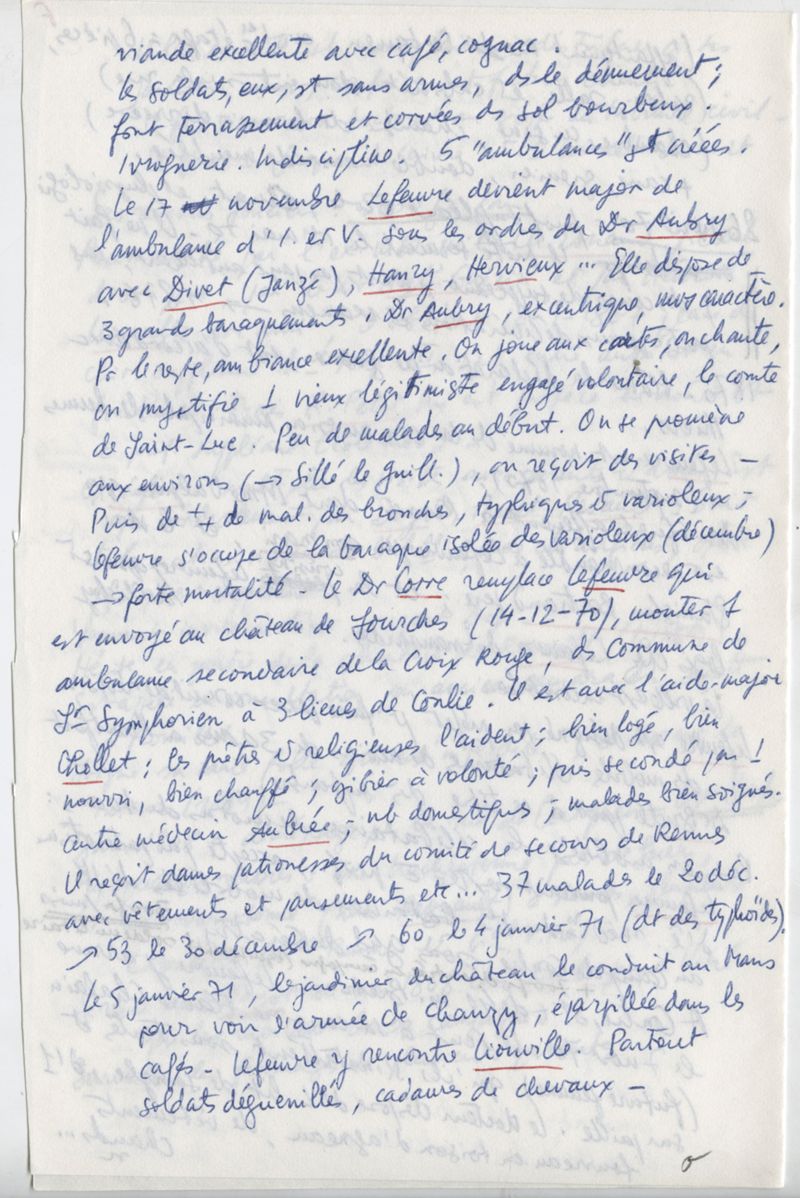 viande excellente avec café, cognac.
les soldats, eux, st sans armes, ds le dénuement ;
font terrassement et corvées ds sol bourbeux.
Ivrognerie. Indiscipline. 5 "ambulances" st créées.
Le 17 novembre Lefeuvre devient major de
l'ambulance d'I. et V. sous les ordres du Dr Aubry
avec Divet (Janzé), Hanry, Hervieux ... Elle dispose de
3 grands baraquements. Dr Aubry, excentrique, mvs caractère.
Pr le reste, ambiance excellente. On joue aux cartes, on chante,
on mystifie 1 vieux légitimiste engagé volontaire, le comte
de Saint-Luc. Peu de malades au début. On se promène
aux environs (→ Sillé le Guill.), on reçoit des visites –
Puis de + + de mal. des bronches, typhiques & varioleux ;
Lefeuvre s'occupe de la baraque isolée des varioleux (décembre)
→ forte mortalité - Le Dr Corre remplace Lefeuvre qui
est envoyé au château de Sourches (14-12-70), monter 1
ambulance secondaire de la Croix Rouge, ds Commune de
St Symphorien à 3 lieues de Conlie. Il est avec l'aide-major
Chollet ; les prêtres & religieuses l'aident ; bien logé, bien
nourri, bien chauffé ; gibier à volonté ; puis secondé par 1
autre médecin Aubrée ; nb domestiques ; malades bien soignés.
Il reçoit dames patronesses du comité de secours de Rennes
avec vêtements et pansements etc... 37 malades le 20 déc.
↗ 53 le 30 décembre ↗ 60 le 4 janvier 71 (dt des typhoïdes).
Le 5 janvier 71, le jardinier du château le conduit au Mans
pour voir l'armée de Chanzy, éparpillée dans les
cafés - Lefeuvre y rencontre Liouville. Partout
soldats déguenillés, cadavres de chevaux –